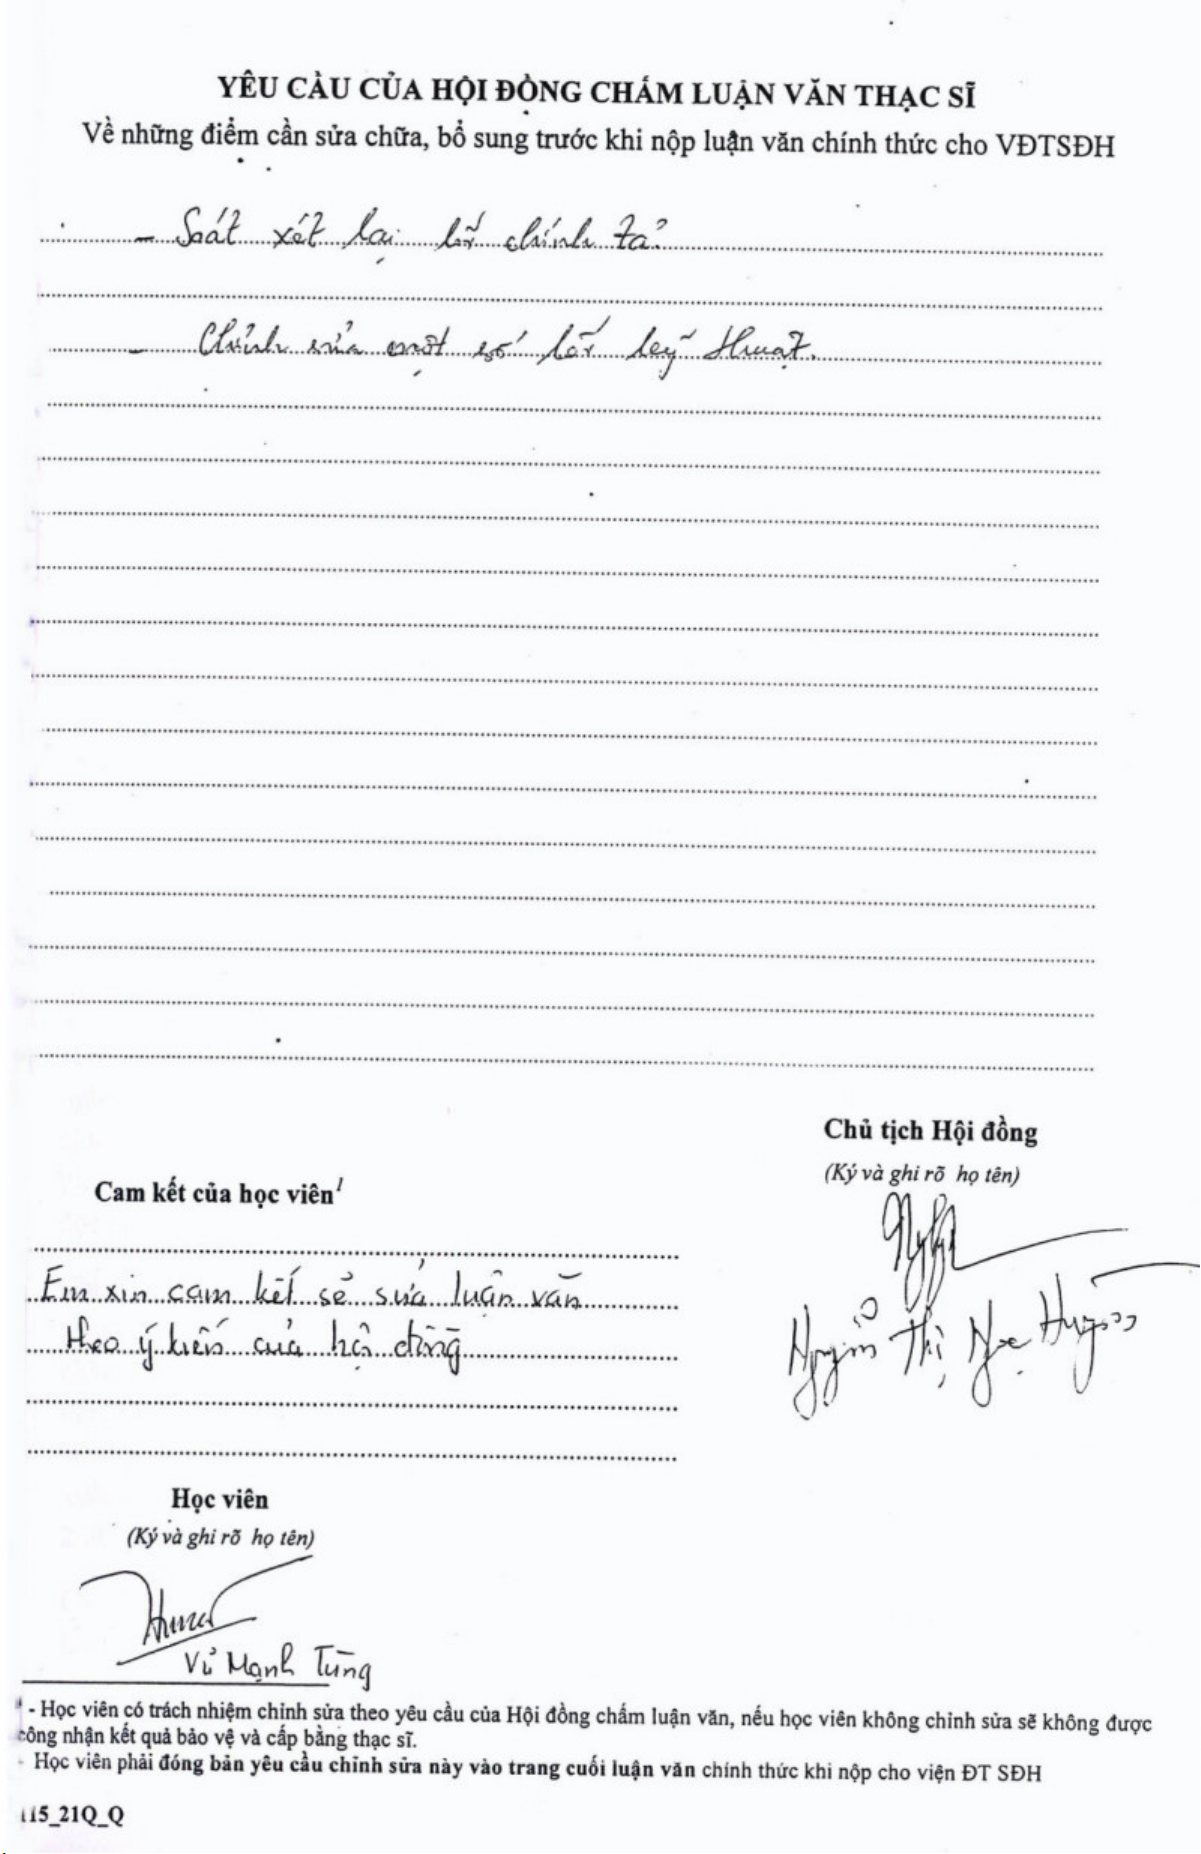 YÊU CẦU CỦA HỘI ĐỒNG CHẤM LUẬN VĂN THẠC SĨ
Về những điểm cần sửa chữa, bổ sung trước khi nộp luận văn chính thức cho VĐTSĐH
- Soát xét lại lỗi chính tả
- Chỉnh sửa một số lỗi kỹ thuật.
Chủ tịch Hội đồng
(Ký và ghi rõ họ tên)
Cam kết của học viên¹
Em xin cam kết sẽ sửa luận văn
theo ý kiến của hội đồng
Nguyễn Thị Ngọc Huyền
Học viên
(Ký và ghi rõ họ tên)
Vũ Mạnh Tùng
¹ - Học viên có trách nhiệm chỉnh sửa theo yêu cầu của Hội đồng chấm luận văn, nếu học viên không chỉnh sửa sẽ không được
công nhận kết quả bảo vệ và cấp bằng thạc sĩ.
- Học viên phải đóng bản yêu cầu chỉnh sửa này vào trang cuối luận văn chính thức khi nộp cho viện ĐT SĐH
115_21Q_Q